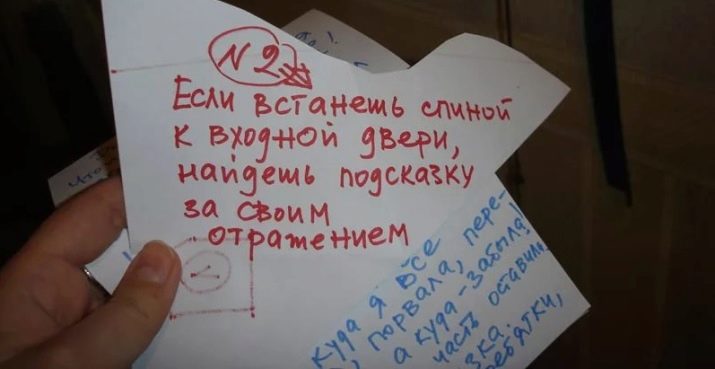 N 2
Если встанешь спиной
к входной двери,
найдешь подсказку
за своим
отражением
куда я все
порвала, пере-
а куда-забыла!
часть оставила